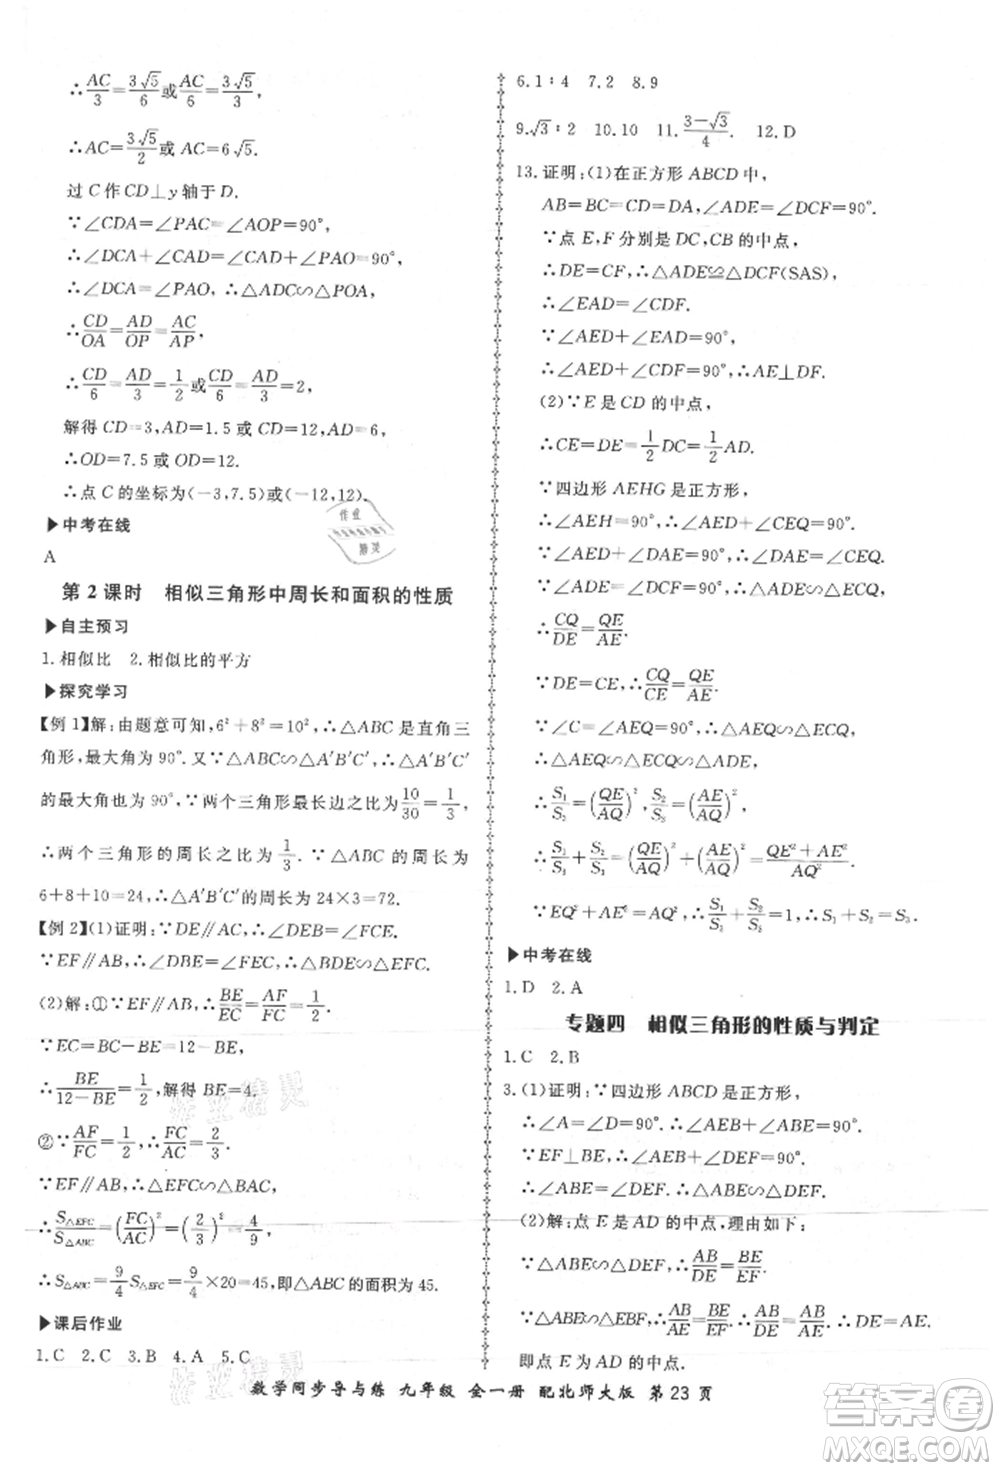 ∴AC/3=3√5/6或AC/6=3√5/3,
∴AC=3√5/2或AC=6√5.
过C作CD⊥y轴于D.
∵∠CDA=∠PAC=∠AOP=90°,
∴∠DCA+∠CAD=∠CAD+∠PAO=90°,
∴∠DCA=∠PAO,∴△DCA∽△POA,
∴CD/OA=AD/OP=AC/AP,
∴CD/6=AD/3=1/2或CD/6=AD/3=2,
解得CD=3,AD=1.5或CD=12,AD=6,
∴OD=7.5或OD=12.
∴点C的坐标为(-3,7.5)或(-12,12).
▶中考在线
A
第2课时 相似三角形中周长和面积的性质
▶自主预习
1.相似比 2.相似比的平方
▶探究学习
【例1】解:由题意可知,6²+8²=10²,∴△ABC是直角三
角形,最大角为90°.又∵△ABC∽△A′B′C′,∴△A′B′C′
的最大角也为90°,∵两个三角形最长边之比为10/30=1/3,
∴两个三角形的周长之比为1/3.∵△ABC的周长为
6+8+10=24,∴△A′B′C′的周长为24×3=72.
【例2】(1)证明:∵DE∥AC,∴∠DEB=∠FCE.
∵EF∥AB,∴∠DBE=∠FEC,∴△BDE∽△EFC.
(2)解:①∵EF∥AB,∴BE/EC=AF/FC=1/2.
∵EC=BC-BE=12-BE,
∴BE/12-BE=1/2,解得BE=4.
②∵AF/FC=1/2,∴FC/AC=2/3.
∵EF∥AB,∴△EFC∽△BAC,
∴S△EFC/S△ABC=(FC/AC)²=(2/3)²=4/9,
∴S△ABC=9/4S△EFC=9/4×20=45,即△ABC的面积为45.
▶课后作业
1.C 2.C 3.B 4.A 5.C
6.1∶4 7.2 8.9
9.√3∶2 10.10 11.3-√3/4. 12.D
13.证明:(1)在正方形ABCD中,
AB=BC=CD=DA,∠ADE=∠DCF=90°.
∵点E,F分别是DC,CB的中点,
∴DE=CF,∴△ADE≌△DCF(SAS),
∴∠EAD=∠CDF.
∵∠AED+∠EAD=90°,
∴∠AED+∠CDF=90°,∴AE⊥DF.
(2)∵E是CD的中点,
∴CE=DE=1/2DC=1/2AD.
∵四边形AEHG是正方形,
∴∠AEH=90°,∴∠AED+∠CEQ=90°.
∴∠DAE=∠CEQ,∴△DAE∽△CEQ,
∴CQ/DE=QE/AE.
∵DE=CE,∴CQ/CE=QE/AE.
∵∠C=∠AEQ=90°,∴△AEQ∽△ECQ,
∴△AEQ∽△ECQ∽△ADE,
∴S₁/S₃=(QE/AQ)²,S₂/S₃=(AE/AQ)²,
∴S₁/S₃+S₂/S₃=(QE/AQ)²+(AE/AQ)²=QE²+AE²/AQ².
∵EQ²+AE²=AQ²,∴S₁/S₃+S₂/S₃=1,∴S₁+S₂=S₃.
▶中考在线
1.D 2.A
专题四 相似三角形的性质与判定
1.C 2.B
3.(1)证明:∵四边形ABCD是正方形,
∴∠A=∠D=90°,∴∠AEB+∠ABE=90°.
∵EF⊥BE,∴∠AEB+∠DEF=90°,
∴∠ABE=∠DEF,∴△ABE∽△DEF.
(2)解:点E是AD的中点,理由如下:
∵△ABE∽△DEF,∴AB/DE=BE/EF.
∵△ABE∽△EBF,∴AB/AE=BE/EF,∴AB/DE=AB/AE,∴DE=AE,
即点E为AD的中点.
数学同步导与练 九年级 全一册 配北师大版 第23页
答案圈
MXQE.COM